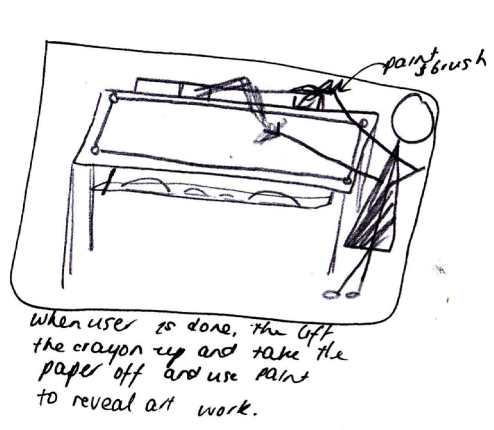 paint
& brush
when user is done, the lift
the crayon up and take the
paper off and use paint
to reveal art work.